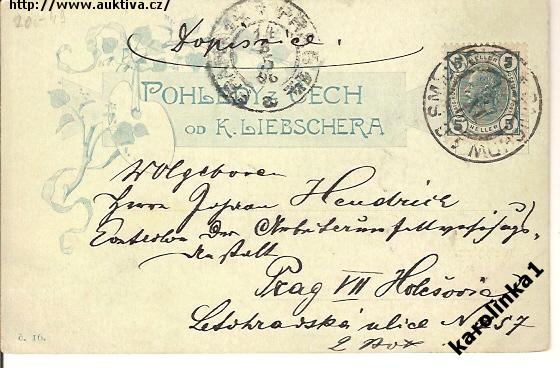 http://www.auktiva.cz/
20.-49
Dopisnice
POHLEDY z ČECH
OD K. LIEBSCHERA
5 HELLER 5
Wolgeboren
Herrn Johann Hendrich
der Arbeiterunfallversich.gs.
Anstalt
Prag VII Holešovic
Letohradská ulice N 257
2 Stok
č. 16.
karolinka1